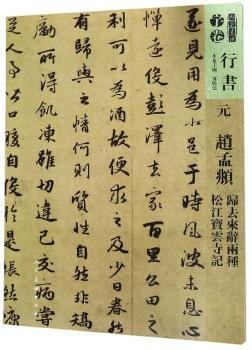 行書
元
趙孟頫
歸去來辭兩種
松江寶雲寺記
遂見用為小邑于時風波未息心
憚遠役彭澤去家百里公田之
利可以為酒故便求之及少日
有歸與之情何則質性自然非矯
勵所得飢凍雖切違己交病嘗
從人事皆口腹自役於是悵然慷